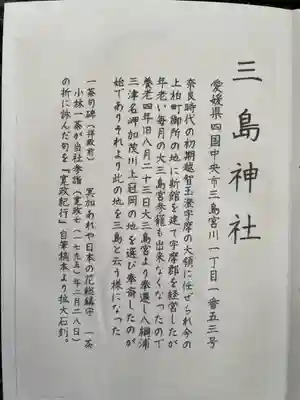 三島神社
愛媛県四国中央市三島宮川一丁目一番五三号
奈良時代の初期越智玉澄宇摩の大領に任ぜられ今の
上柏町御所の地に新館を建て宇摩郡を経営したが
年老い毎月の大三島宮参籠も出来なくなったので
養老四年旧八月二十三日大三島宮より奉遷し八綱浦
三津名岬加茂川上冠岡の地を選び奉斎したのが
始でありそれより此の地を三島と云う様になった
一茶句碑(拝殿前) 冥加あれや日本の花惣鎮守 一茶
小林一茶が当社参詣(寛政七(一七九五)年二月二八日)
の折に詠んだ句を『寛政紀行』自筆稿本より拡大石刻。